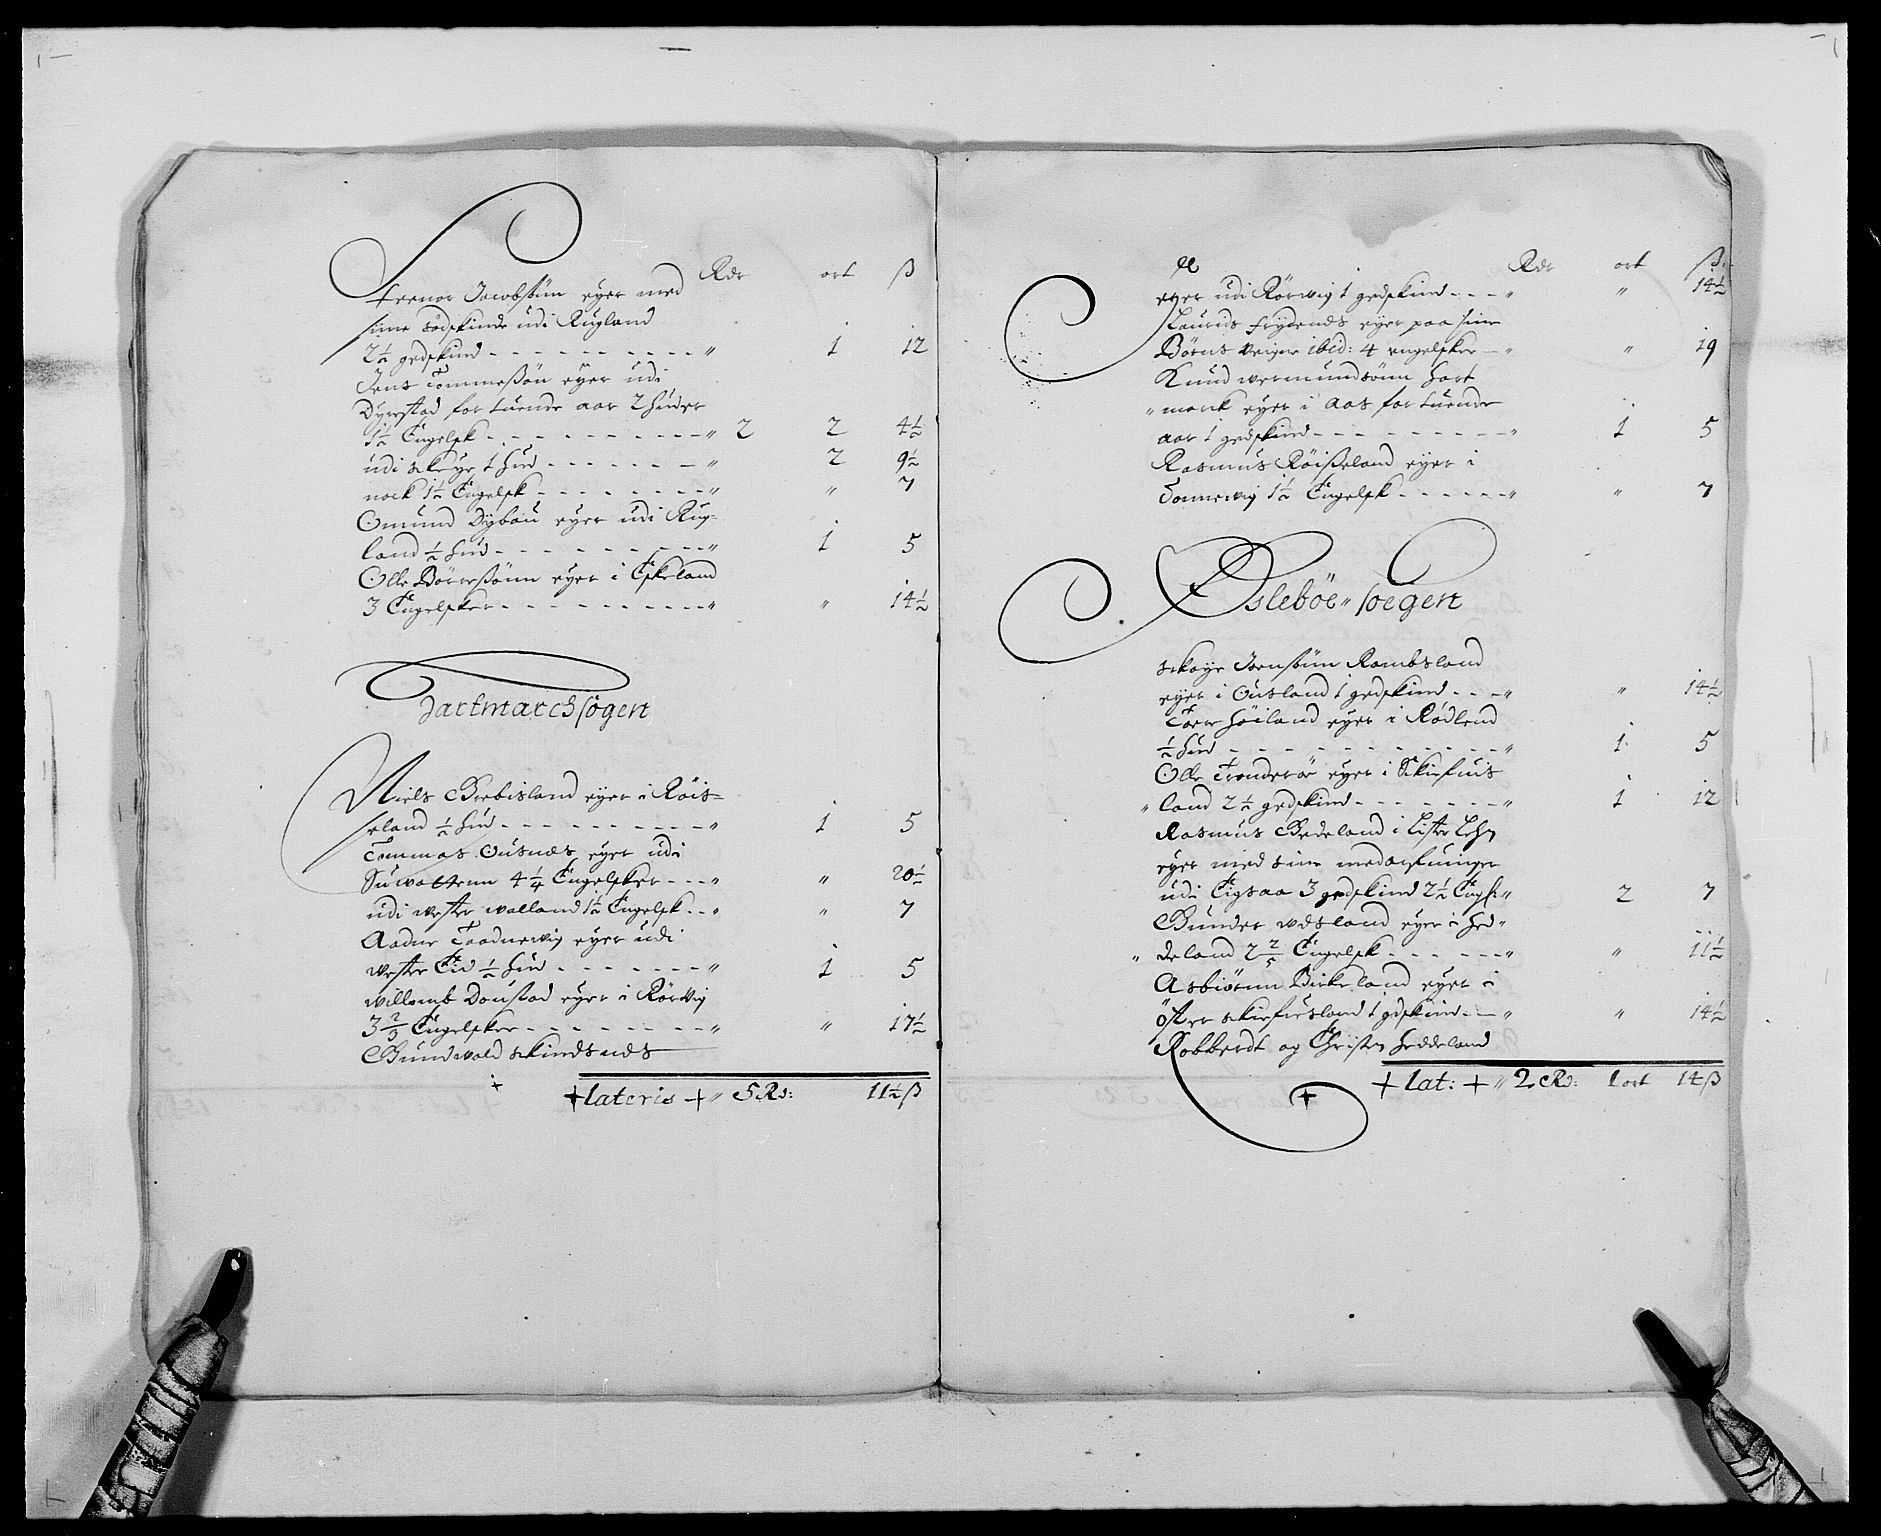 Rdr ort ß
Jacobsøn eyer med
sine södskinde udi Rugland
2½ gedskind - - - - - - - - - - " 1 12
Jens Tommesßön eyer udi
Dyrestad for tuende aar 2 huder
1½ Engelsk - - - - - - - - - - " 2 2 4½
udi Skeye 1 hud - - - - - - - " 2 9½
nock 1½ Engelsk - - - - - - - - " " 7
Omund Dybou eyer udi Rug-
land ½ hud - - - - - - - - - - " 1 5
Olle Börresßönn eyer i Eskeland
3 Engelsker - - - - - - - - - - " " 14½
Hartmarchsogen
Niels Birbisland eyer i Röis-
seland ½ hud - - - - - - - - - " 1 5
Tommas Ousnes eyer udi
Suvattenn 4¼ Engelsker - - - " " 20½
udi wester walland 1½ Engelsk - - " " 7
Aadne Taadnevig eyer udi
wester Eid ½ hud - - - - - - - " 1 5
willomb Doustad eyer i Rörvig
3⅗ Engelsker - - - - - - - - " " 17½
Gundwald Skindsnes
+ lateris + " 5 Rd: 11½ ß
Rdr ort ß
eyer udi Rörwig 1 gedskind - - - " " 14½
Laurids frydends eyer paa sine
Börns weigne ibid: 4 engelsker - " " 19
Knud wermundsönn hart
" mark eyer i Aas for tuende
aar 1 gedskind - - - - - - - - - " 1 5
Rasmus Röisßeland eyer i
Tonnevig 1½ Engelsk - - - - - - " " 7
Ösleböe " soegen
Skaye Joensßönn Rambsland
eyer i Ousland 1 gedskind - - - " " 14½
Tore höiland eyer i Rödlend
½ hud - - - - - - - - - - - " 1 5
Olle Tronderöe eyer i Skiefuis
" land 2½ gedskind - - - - - - - " 1 12
Rasmus Bedeland i Lister Lehn
eyer med sine medarfuinger
udi Eigsaa 3 gedskind 2½ Engs: " 2 7
Gunder wdsland eyer i hed "
" deland 2⅖ Engelsk - - - - - - " " 11½
Asbiörnn Birkeland eyer i
öster Skiefuesland 1 gedskind - - " " 14½
Robberdt og Christen heddeland
+ lat: + " 2 Rd: 1 ort 14 ß